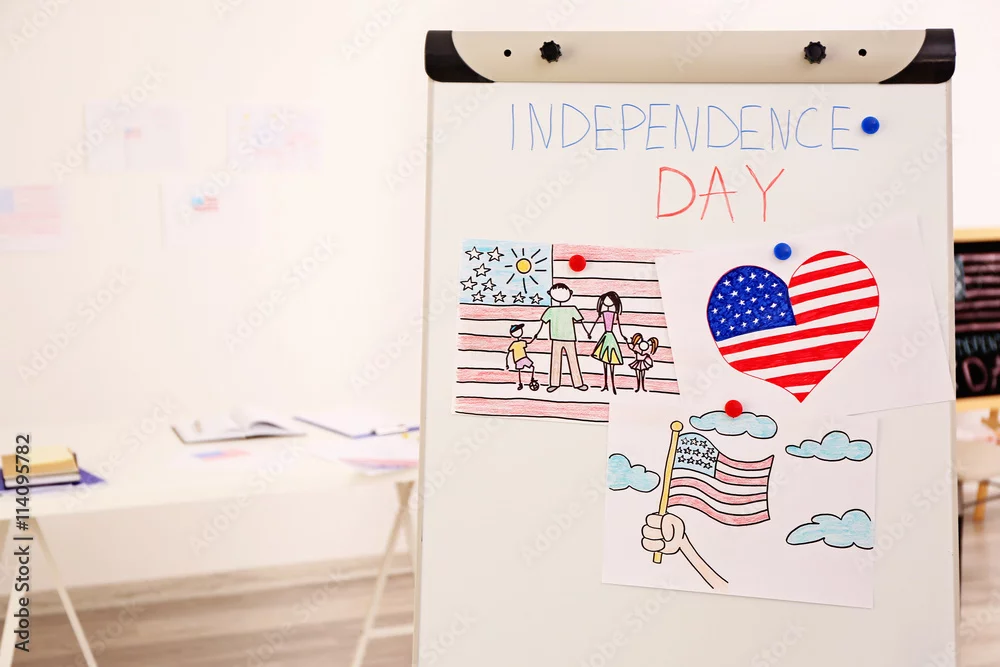 INDEPENDENCE
DAY
Adobe Stock | #114095782